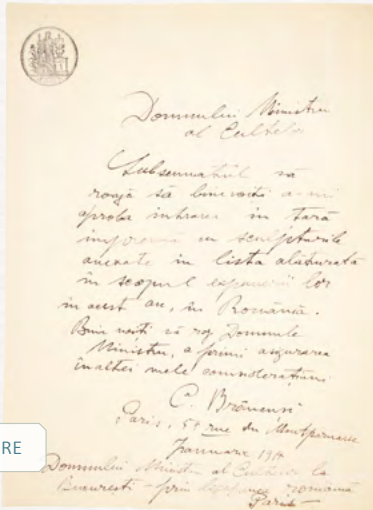 Domnului Ministru
al Cultelor
Subsemnatul vă
roagă să binevoiți a-mi
aproba intrarea în țară
împreună cu sculpturile
anexate în lista alăturată
în scopul expunerii lor
în acest an, în România.
Bine voiți vă rog Domnule
Ministru, a primi asigurarea
înaltei mele considerațiuni
C. Brâncuși
Paris, 54 rue du Montparnasse
Ianuarie
Domnului Ministru al Cultelor la
București – prin legațiunea română
Paris –
RE